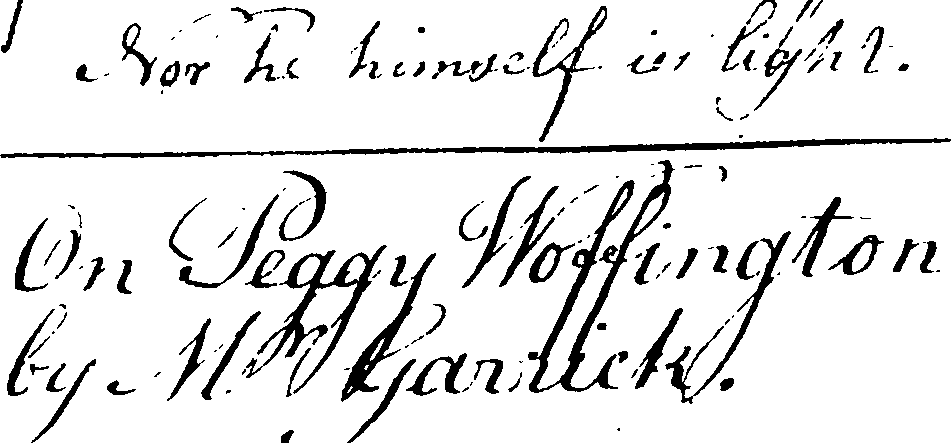 Nor he himself is light.
On Peggy Woffington
by Mr Garrick.